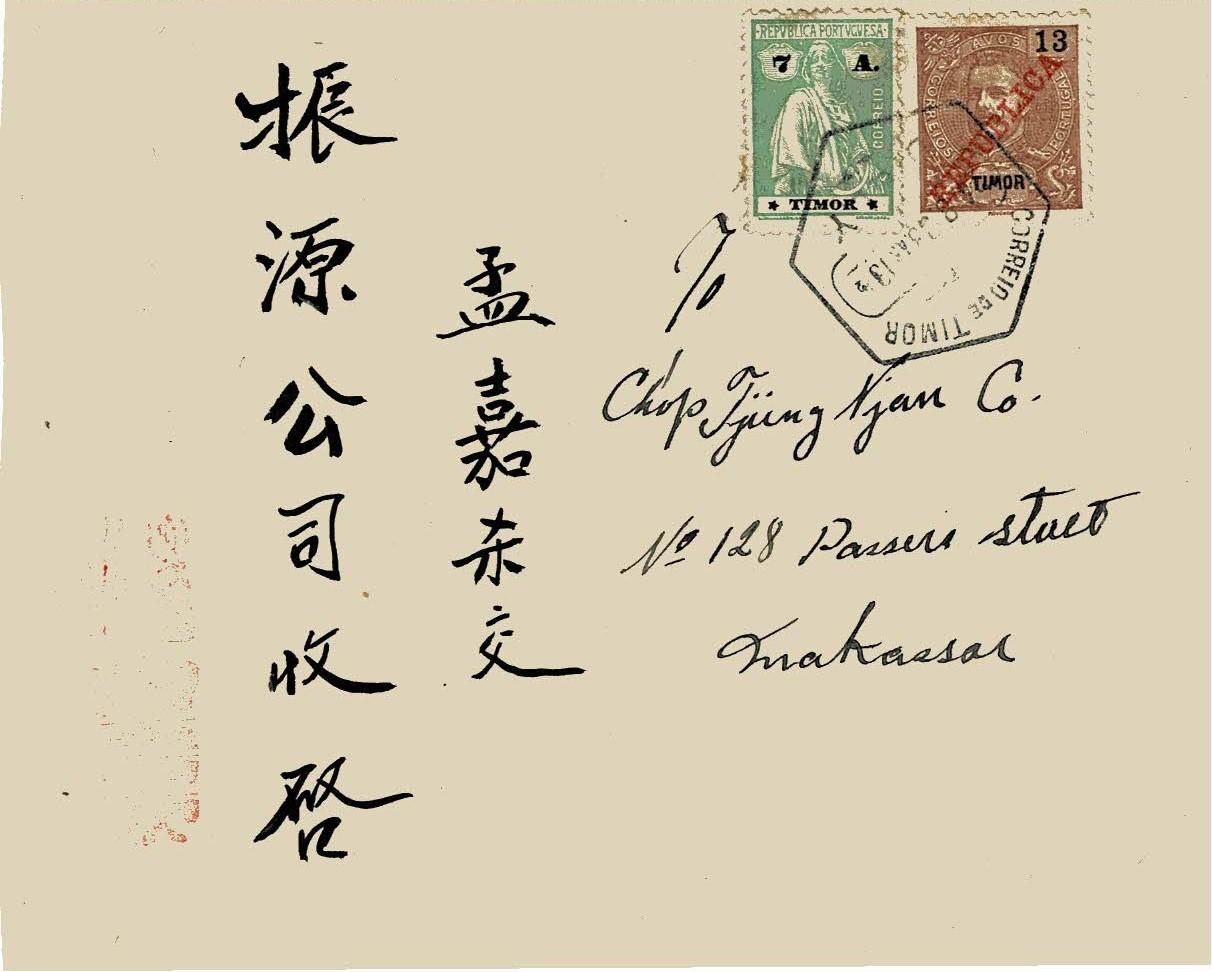 REPVBLICA PORTVGVESA
7 A.
CORREIO
TIMOR
AVOS
13
CORREIOS
PORTUGAL
REPUBLICA
TIMOR
CORREIO DE TIMOR
To
Chop Tjiung Njan Co.
No 128 Passers street
Makassar
孟嘉朩交
振源公司收啓